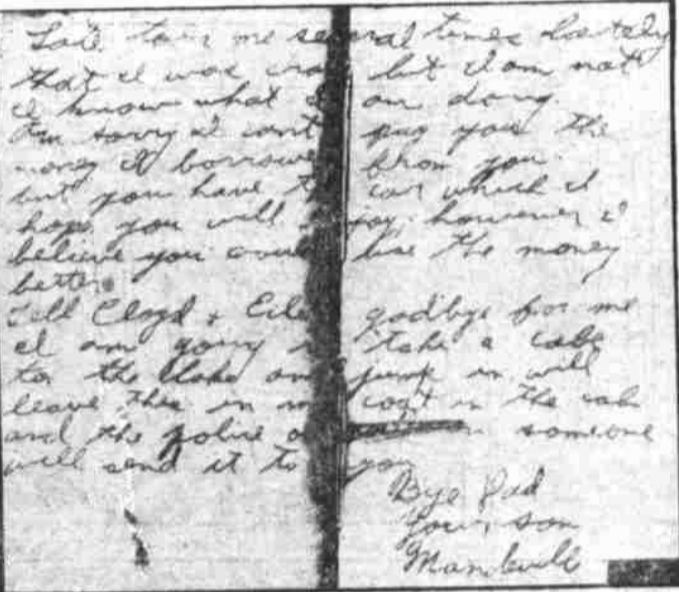 me several times lately
that I was crazy but I am not
I know what I am doing.
I'm sorry I cant pay you the
money I borrowed from you
but you have the car which I
hope you will enjoy. however I
believe you could use the money
better.
Tell Cloyd + goodbye for me
I am going to take a cab
to the lake and jump in will
leave this in my coat in the cab
and the police or someone
will send it to you
Bye Dad
Your son